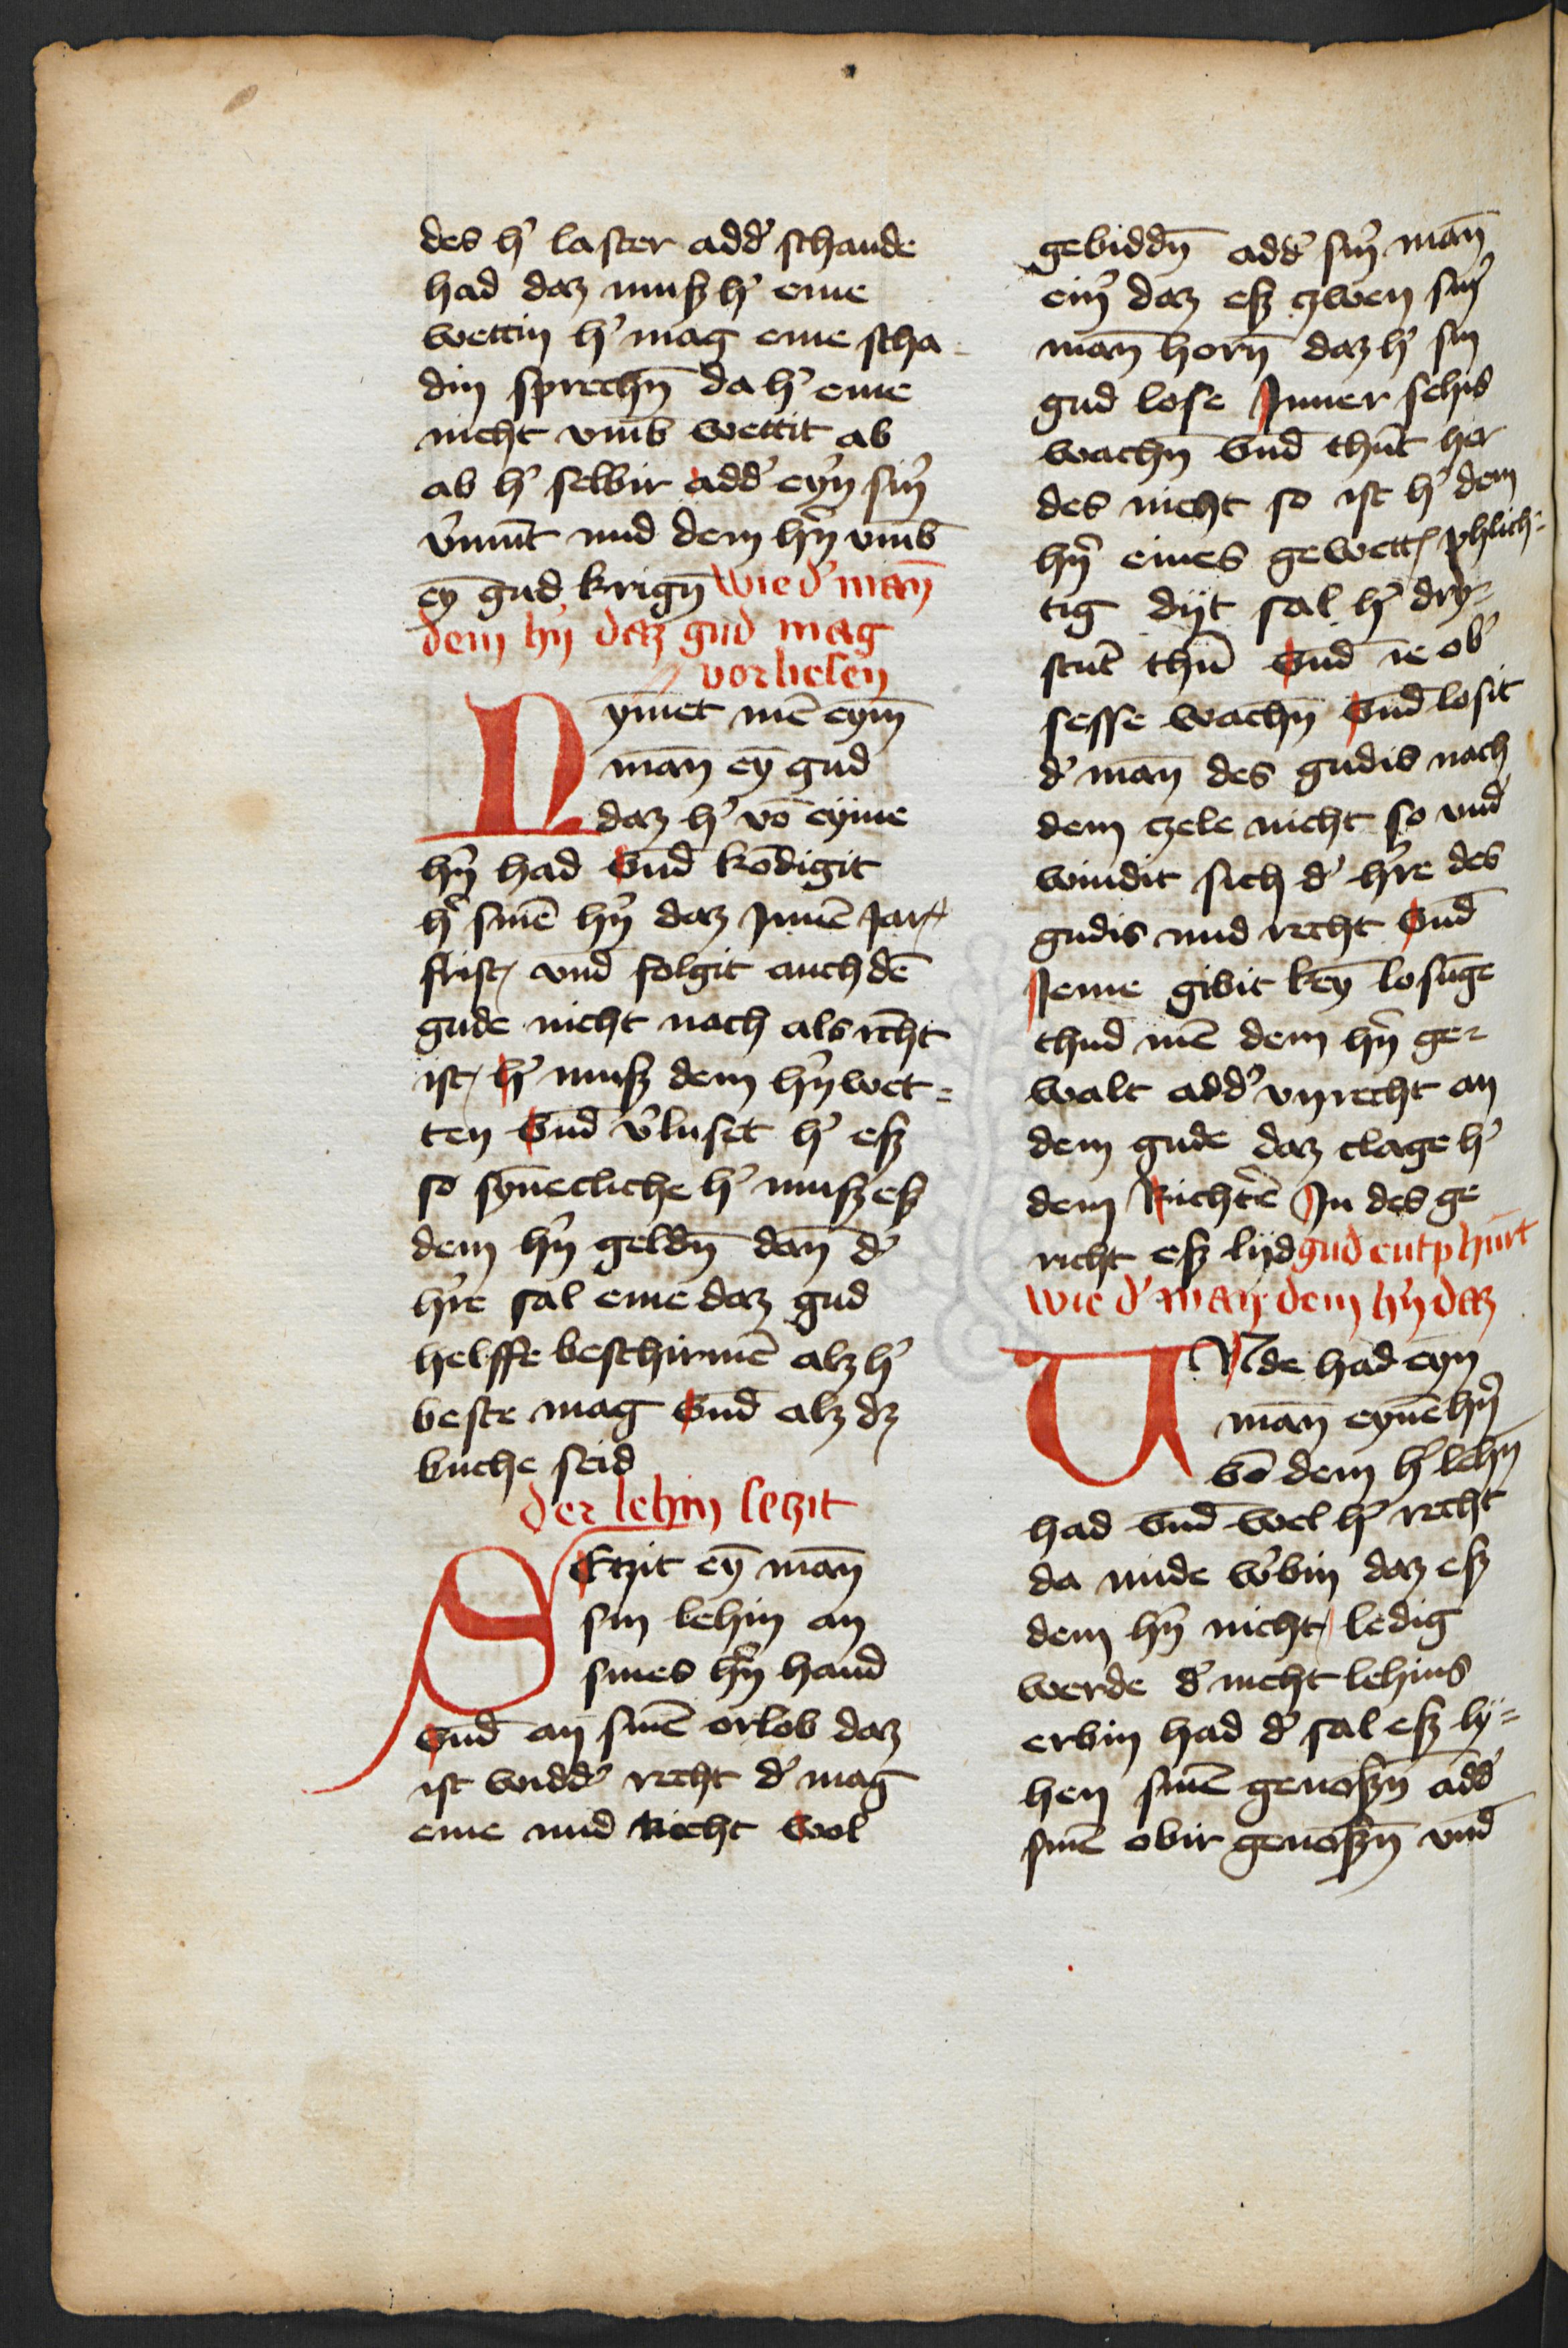 des h' laster add' schande
had daz musz h' eme
wettin h' mag eme scha-
din sprechn̄ da h' eme
nicht vm̄b wettit ab
ab h' selbir add' eyn̄ sin̄
v'nūnt mid dem hn̄ vm̄b
eȳ gud krign̄ wie d' man̄
dem hn̄ daz gud mag
vorliesen
Nymet mē eym̄
man̄ eȳ gud
daz h' vō eyme
hn̄ had vnd̄ kōdigit
h' smē hn̄ daz Jnnē Jar
frist vnd̄ folgit auch dē
gude nicht noch als recht
ist h' musz dem hn̄ wet=
ten vnd̄ v'luset h' esz
so sȳnecliche h' musz esz
dem hn̄ geldn̄ dan̄ d'
h're sal eme daz gud
helffe beschirmē alz h'
beste mag vnd̄ alz dz
buche seid
der lehin setzit
SEtzit eȳ man̄
sin lehin an
sines hn̄ hand
vnd̄ an sinē orlob daz
ist widd' recht d' mag
eme mid Recht wol
gebiddn̄ add' sin̄ man̄
ein̄ daz esz zwen sin̄
man̄ horn̄ daz h' sin
gud lose Jnner sehis
wachn̄ vnd̄ thūt her
des nicht so ist h' dem
hn̄ eines gewett phlich=
tig dijt sal h' dry-
stūt thū vnd̄ ie ob'
sesse wachn̄ vnd̄ losit
d' man̄ des gudis noch
dem czele nicht so vnd'
windit sich d' h're des
gudis mid recht vnd̄
Jeme gibit keȳ losūge
thud mē dem hn̄ ge-
walt add' vnrecht an
dem gude daz clage h'
dem Richt'e Jn des ge
richt esz lijd gud entphūrt
wie d' man dem hn̄ daz
VNde had eyn
man̄ eynē hn̄
vō dem h' lehn̄
had vnd̄ wel h' recht
da mide w'bin daz esz
dem hn̄ nicht ledig
werde d' nicht lehins
erbin had d' sal esz ly=
hen sinē genoszn̄ add'
sinē obir genoszn̄ vnd̄